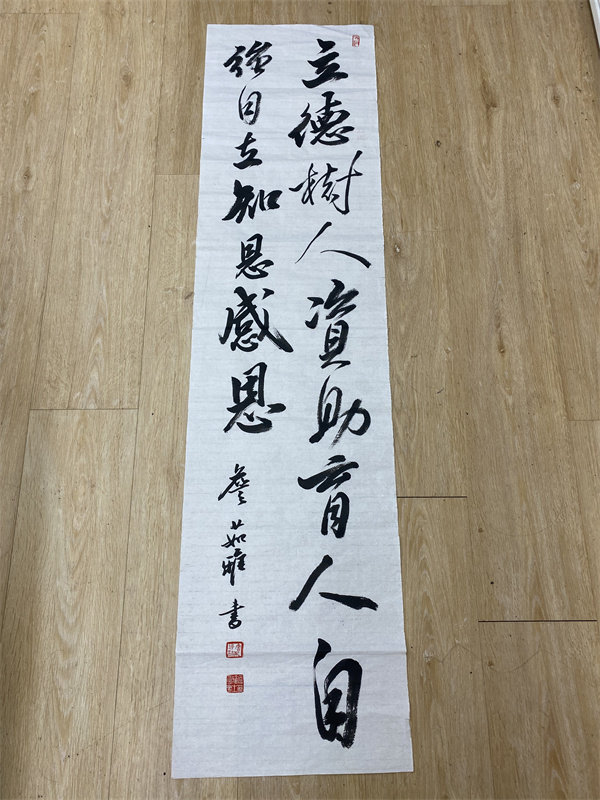 立德樹人資助育人自
強自立知恩感恩
詹茹雕書